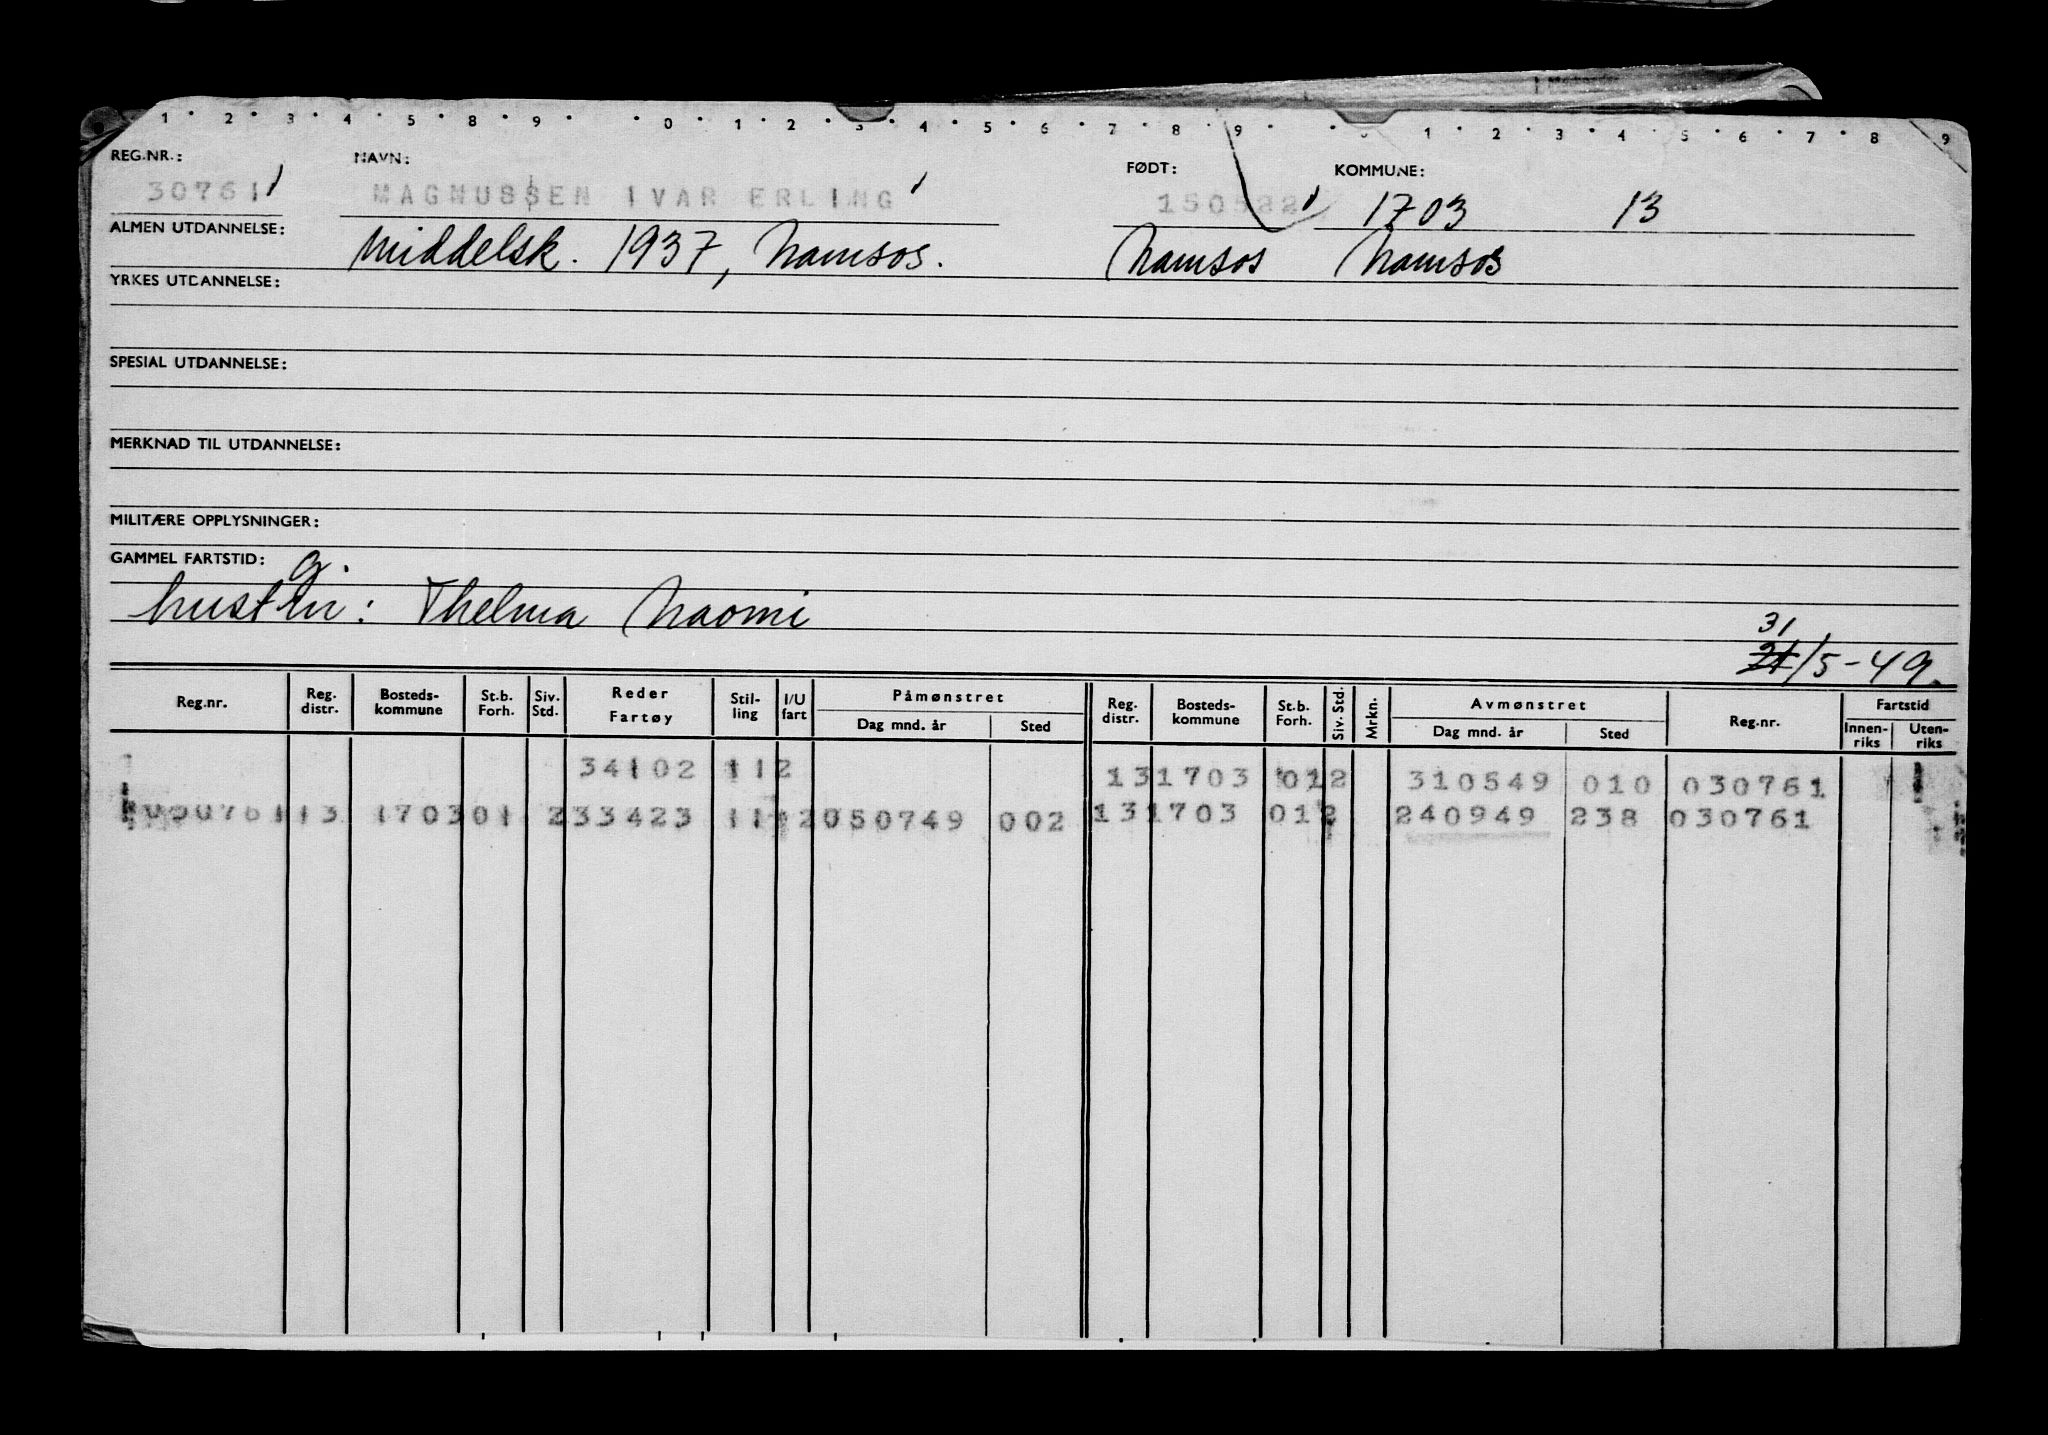 1 2 3 4 5 8 9 0 1 2 3 4 5 6 7 8 9 1 2 3 4 5 6 7 8 9
REG.NR.: NAVN: FØDT: KOMMUNE:
30761 MAGNUSSEN IVAR ERLING 1703 13
ALMEN UTDANNELSE: Middelsk. 1937, Namsos. Namsos Namsos
YRKES UTDANNELSE:
SPESIAL UTDANNELSE:
MERKNAD TIL UTDANNELSE:
MILITÆRE OPPLYSNINGER:
GAMMEL FARTSTID: g.
hustru: Thelma Naomi
31
21/5-49.
Reg.nr. Reg. distr. Bosteds-kommune St.b. Forh. Siv. Std. Reder Fartøy Stil-ling I/U fart Påmønstret Dag mnd. år Sted Reg. distr. Bosteds-kommune St.b. Forh. Siv. Std. Mrkn. Avmønstret Dag mnd. år Sted Reg.nr. Fartstid Innen-riks Uten-riks
34102 112 131703 012 310549 010 030761
030761 13 170301 233423 11 2050749 002 131703 012 240949 238 030761